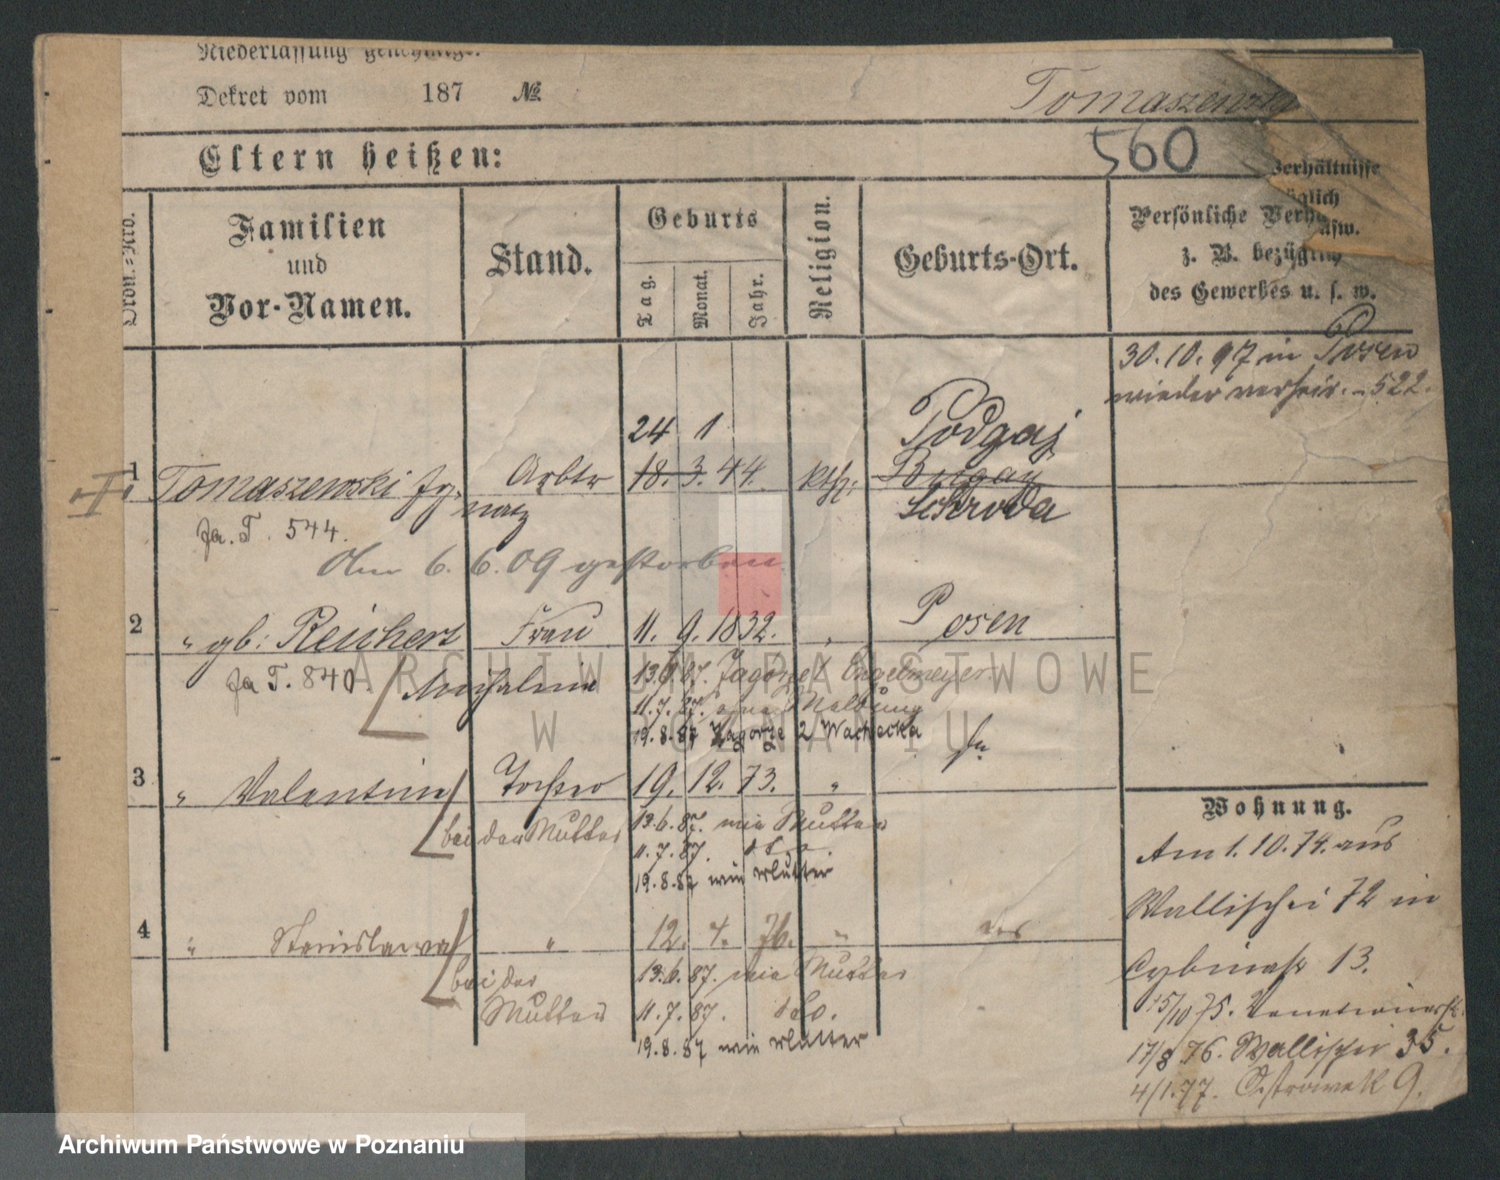 Niederlassung genehmigt.
Dekret vom 187 №
Tomaszewski
560
Eltern heißen:
Verhältnisse
Ordn.-Nro.
Familien
und
Vor-Namen.
Stand.
Geburts
Tag.
Monat.
Jahr.
Religion.
Geburts-Ort.
Persönliche Verh
z. B. bezüglich
des Gewerbes u. s. w.
30. 10. 97 in Posen
wieder verheir. - 522.
1 Tomaszewski Ignatz Arbtr 24 1
18. 3. 44. kth. Podgaj
Bugay
Schroda
Fa. T. 544.
Am 6. 6. 09 gestorben.
2 " gb: Reichert Frau 11. 9. 1832. " Posen
Fa T. 840 Michalina 13.6.87. Zagorze / Engelmeyer.
11.7.87. ohne Meldung
19.8.87 Zagorze 2 Wachecka
3 " Valentin Tochter 19. 12. 73. "
bei der Mutter 13.6.87. wie Mutter
11.7.87. dto.
19.8.87 wie Mutter
4 " Stanislawa " 12. 4. 76. "
bei der Mutter 13.6.87. wie Mutter
11.7.87. dto.
19.8.87 wie Mutter
Wohnung.
Am 1. 10. 74. aus
Wallischei 72 in
Cybinastr 13.
15/10 75. Venetianerstr.
17/8 76. Wallischei 35.
4/1.77. Ostrowek 9.
ARCHIWUM PAŃSTWOWE
W POZNANIU
Archiwum Państwowe w Poznaniu